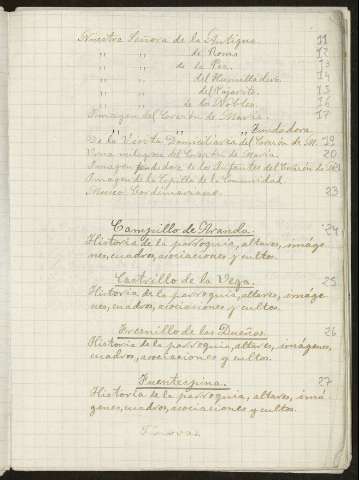 Nuestra Señora de la Antigua. 11
" " de Roma 12
" " de la Paz. 13
" " del Humilladero 14
" " del Pajarito. 15
" " de los Nobles. 16
Imagen del Corazón de María. 17
" " " " Fundadora
De la Visita Domiciliaria del Corazón de M. 19
Vena milagrosa del Corazón de María. 20
Imagen fundadora de los Infantes del Corazón de M. 21
Imagen de la Capilla de la Comunidad
Museo Cordimariano. 23
Campillo de Aranda. 24
Historia de la parroquia, altares, imáge-
nes, cuadros, asociaciones y cultos.
Castrillo de la Vega. 25
Historia de la parroquia, altares, imáge-
nes, cuadros, asociaciones y cultos.
Fresnillo de las Dueñas. 26
Historia de la parroquia, altares, imágenes,
cuadros, asociaciones y cultos.
Fuentespina. 27
Historia de la parroquia, altares, imá-
genes, cuadros, asociaciones y cultos.